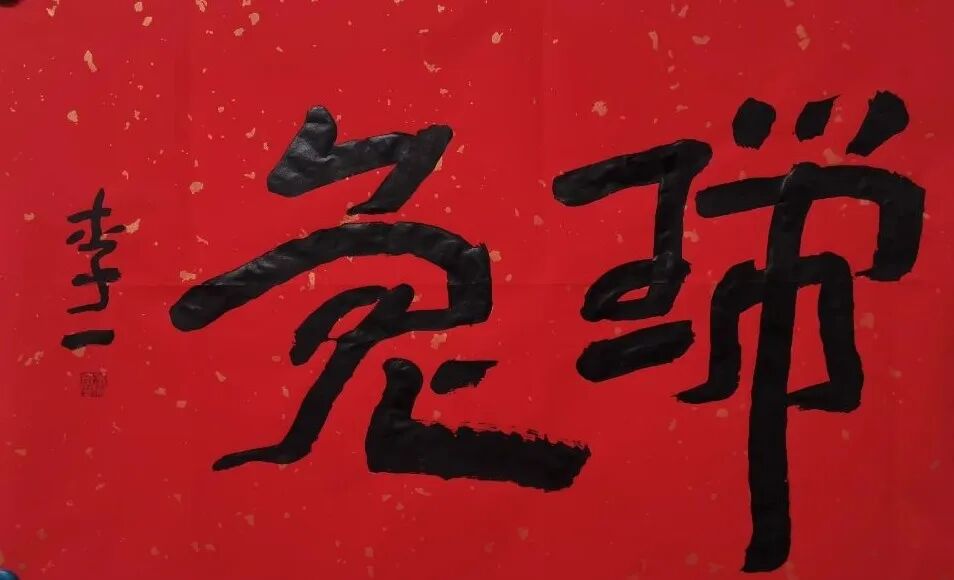 瑞兔
李一